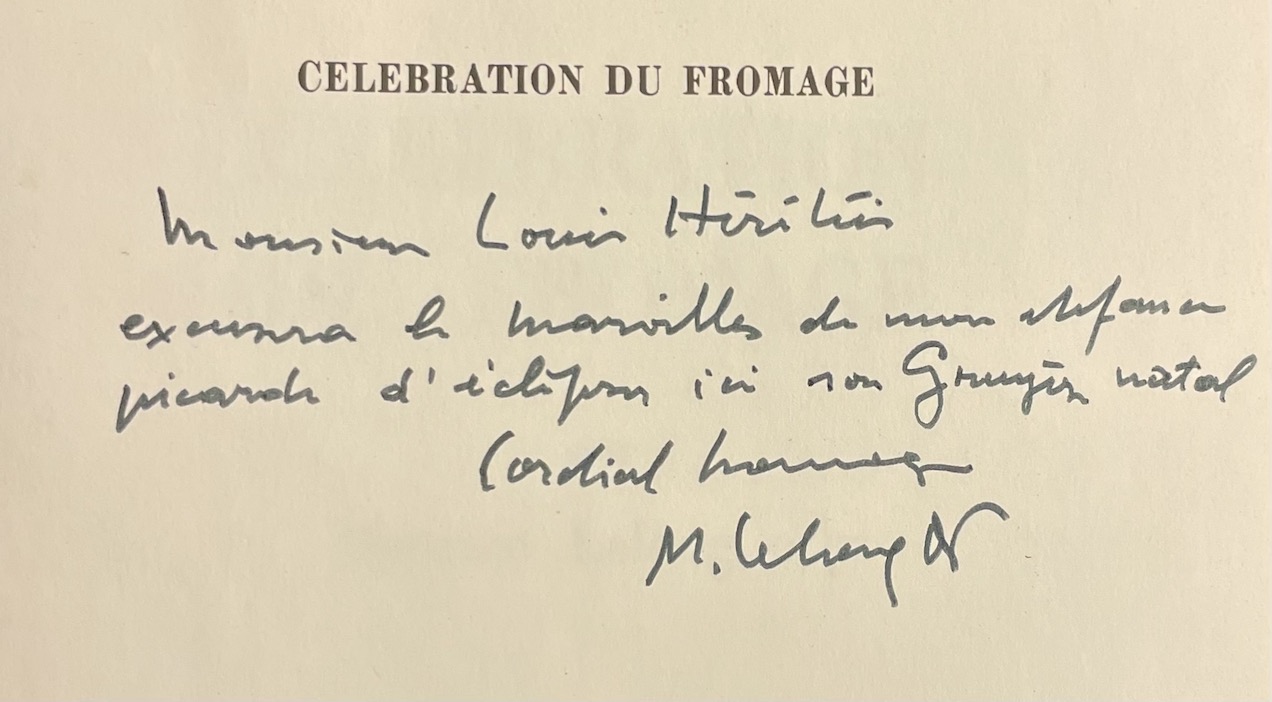 CELEBRATION DU FROMAGE
Monsieur Louis Héritier
excusera le maroilles de mon enfance
picarde d'éclipser ici son Gruyère natal
Cordial hommage
M. Lelong